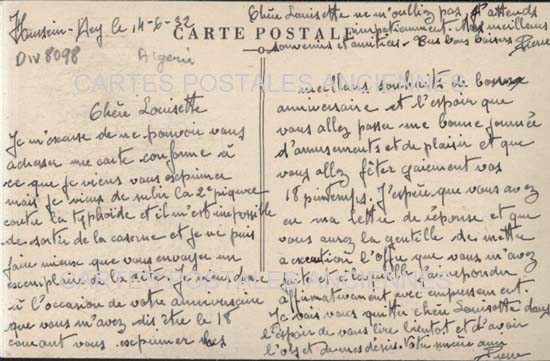 Hussein-Dey le 14-6-32
DIV 8098
Algérie
CARTE POSTALE
CARTES POSTALES ANCIENNES
Chère Louisette
Je m'excuse de ne pouvoir vous
adresser une carte conforme à
ce que je viens vous exprimer
mais je viens de subir la 2e piqure
contre la typhoïde et il m'est impossible
de sortir de la caserne et je ne puis
faire mieux que vous envoyer un
exemplaire de la vue
à l'occasion de votre anniversaire
que vous m'avez dis être le 18
courant vous exprimer mes
meilleurs souhaits de bonne
anniversaire et l'espoir que
vous allez passer une bonne journée
d'amusements et de plaisir et que
vous allez fêter gaiement vos
18 printemps. J'espère que vous avez
eu ma lettre de réponse et que
vous aurez la gentille de mettre
à exécution l'offre que vous m'avez
faite et à laquelle j'ai répondu
affirmativement avec empressement.
Je vais vous quitter chère Louisette dans
l'espoir de vous lire bientôt et d'avoir
l'objet de mes désirs. Votre sincère ami
Pierre
Chère Louisette ne m'oubliez pas j'attends
impatiemment. Mes meilleurs
souvenirs et amitiés. Bons doux baisers Pierre
CARTES POSTALES ANCIENNES